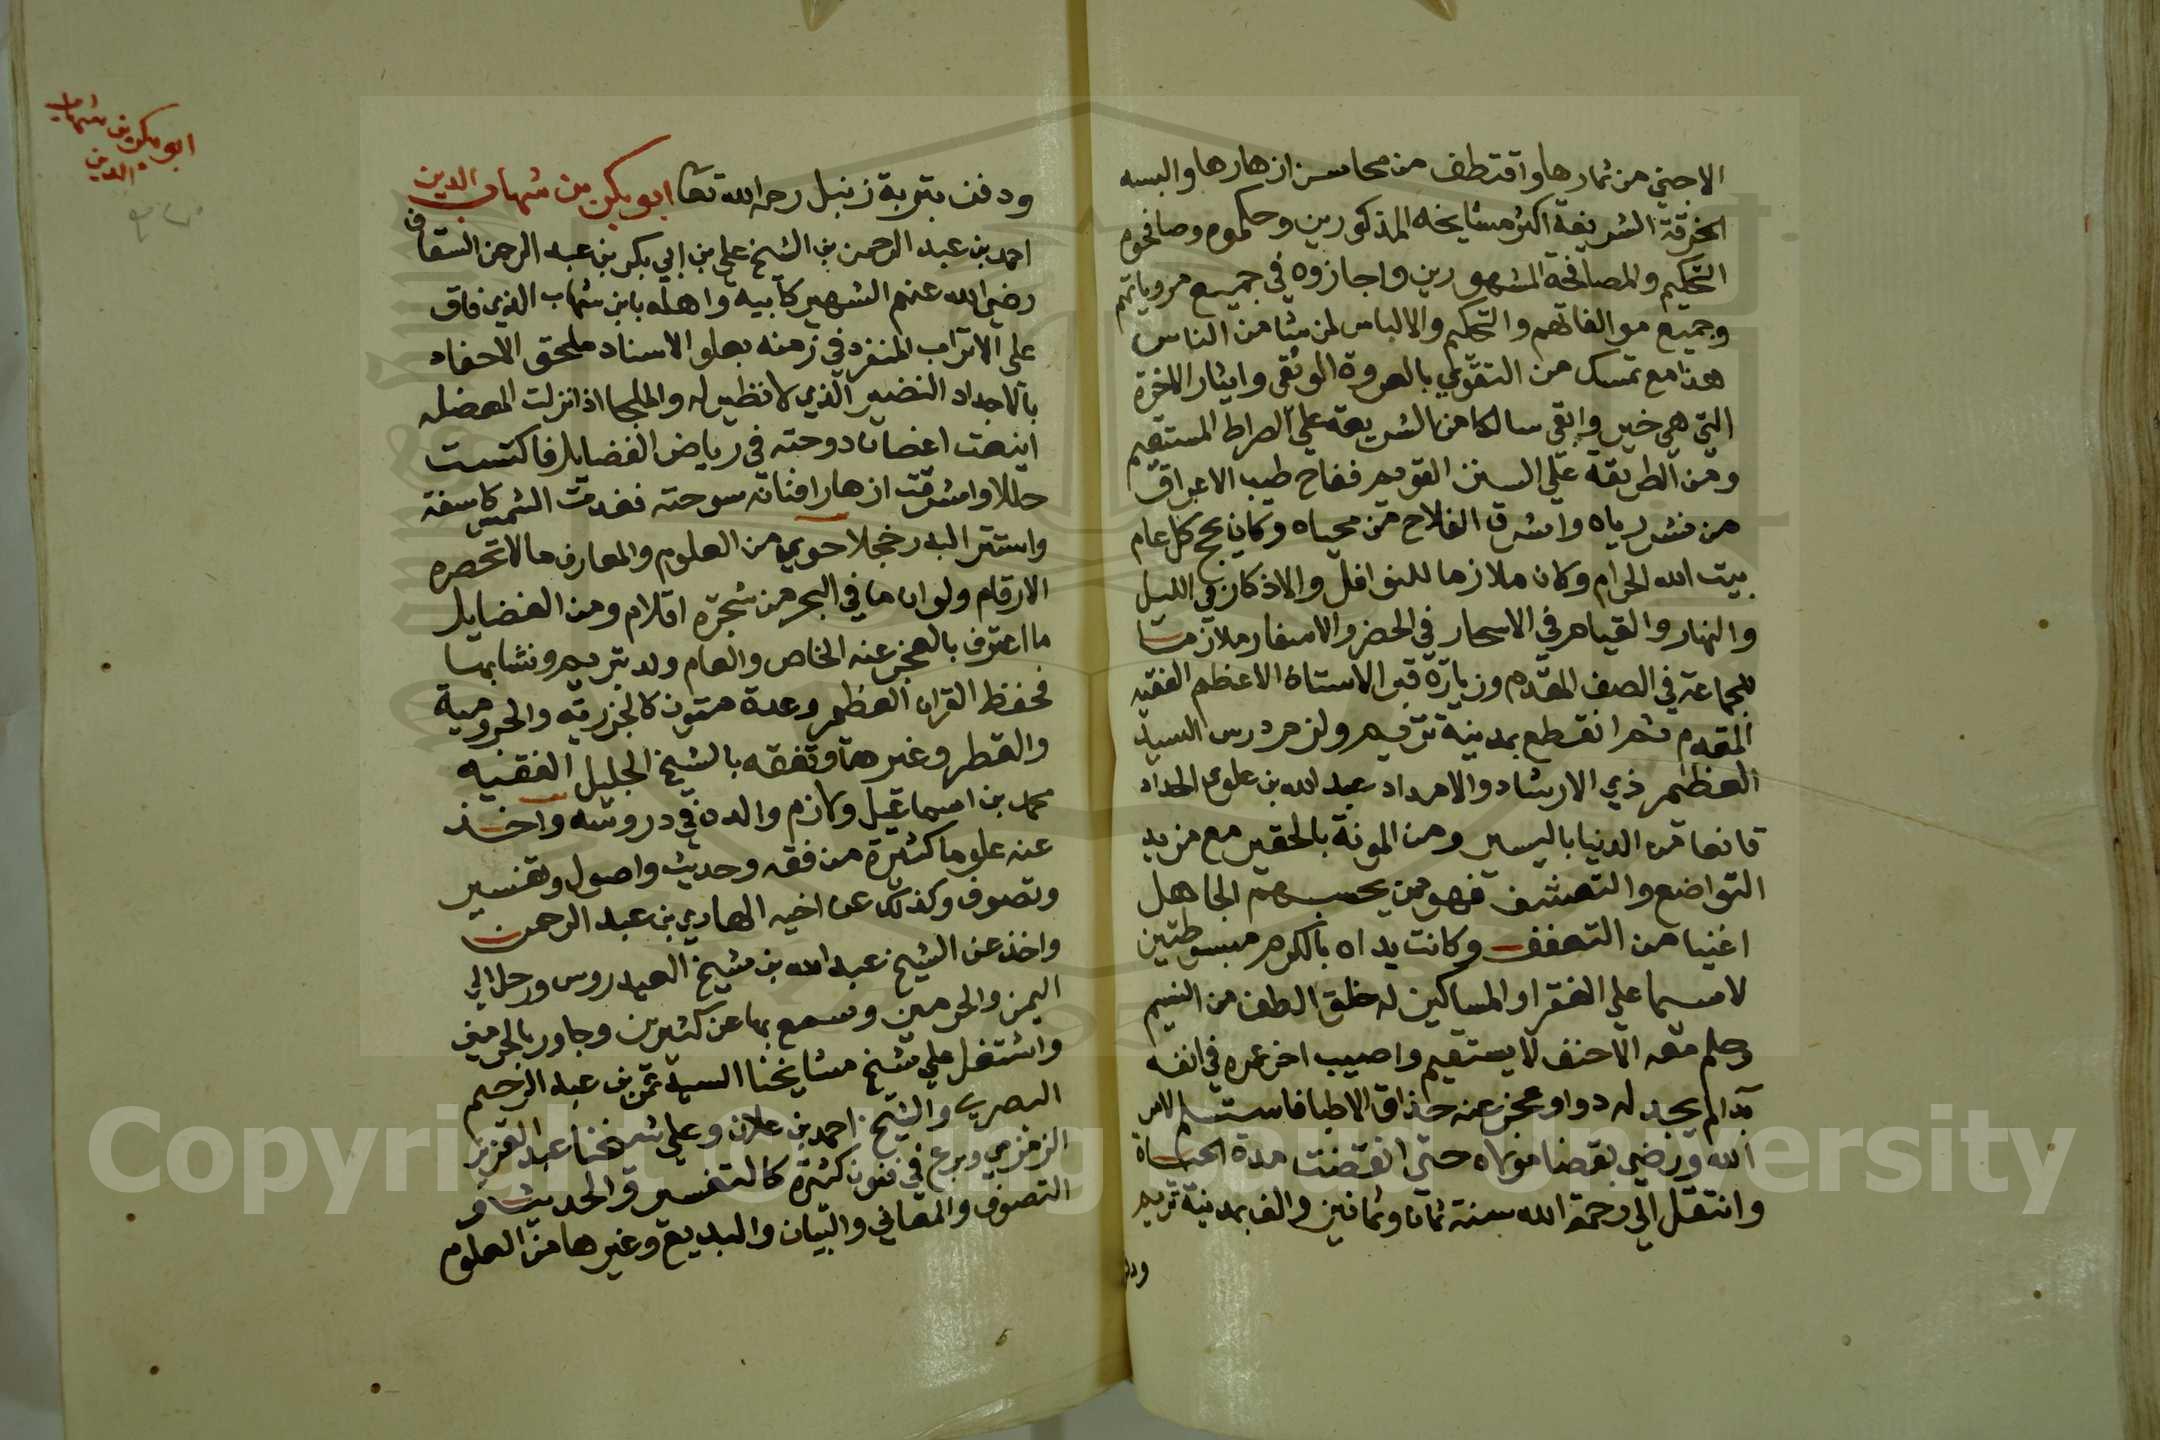 الا جني من ثمارها واقتطف من محاسن ازهارها والبسه
الخرقة الشريفة اكثر مشايخه المذكورين وحكموه وصافحوه
التحكيم والمصافحة المشهورين واجازوه في جميع مروياتهم
وجميع موالفاتهم والتحكيم والالباس لمن شا من الناس
هذا مع تمسك من التقوي بالعروة الوثقي وايثار الاخرة
التي هي خير وابقي سالكا من الشريعة علي الصراط المستقيم
ومن الطريقة علي السنن القويم ففاح طيب الاعراق
من نشر رياه واشرق الفلاح من محياه وكان يحج كل عام
بيت الله الحرام وكان ملازما للنوافل والاذكار في الليل
والنهار والقيام في الاسحار في الحضر والاسفار ملازما
للجماعة في الصف المقدم وزيارة قبر الاستاذ الاعظم الفقيه
المقدم ثم انقطع بمدينة تريم ولزم درس السيد
العظيم ذي الارشاد والامداد عبد الله بن علوي الحداد
قانعا من الدنيا باليسير ومن المونة بالحقير مع مزيد
التواضع والتقشف فهو ممن يحسبهم الجاهل
اغنيا من التعفف وكانت يداه بالكرم مبسوطتين
لا سيما علي الفقرا والمساكين له خلق الطف من النسيم
وحلم معه الاحنف لا يستقيم واصيب اخر عمره في انفه
بدالم يجد له دوا وعجز عنه حذاق الاطبا فاستسلم لامر
الله ورضي بقضا مولاه حتي انقضت مدة الحياة
وانتقل الي رحمة الله سنة ثمان وثمانين والف بمدينة تريم
ودفن
ودفن بتربة زنبل رحمه الله تعا ابو بكر بن شهاب الدين
احمد بن عبد الرحمن بن الشيخ علي بن ابي بكر بن عبد الرحمن السقاف
رضي الله عنهم الشهير كابيه واهله بابن شهاب الذي فاق
علي الاتراب المنفرد في زمنه بعلو الاسناد ملحق الاحفاد
بالاجداد النضير الذي لا نظير له والملجا اذا نزلت المعضله
اينعت اغصان دوحته في رياض الفضايل فاكتست
حللا واشرقت ازهار افنانه سوحته فغدت الشمس كاسفة
واستتر البدر خجلا حوي من العلوم والمعارف ما لا تحصره
الارقام ولو ان ما في البحر من شجرة اقلام ومن الفضايل
ما اعترف بالعجز عنه الخاص والعام ولد بتريم ونشا بها
فحفظ القران العظيم وعدة متون كالجزرية والجرومية
والقطر وغيرها وتفقه بالشيخ الجليل الفقيه
محمد بن اسماعيل ولازم والده في دروسه واخذ
عنه علوما كثيرة من فقه وحديث واصول وتفسير
وتصوف وكذلك عن اخيه الهادي بن عبد الرحمن
واخذ عن الشيخ عبد الله بن شيخ العيدروس ورحل الي
اليمن والحرمين وسمع بها عن كثيرين وجاور بالحرمين
واشتغل علي شيخ مشايخنا السيد عمر بن عبد الرحيم
البصري والشيخ احمد بن علان وعلي شيخنا عبد العزيز
الزمزمي وبرع في فنون كثيرة كالتفسير والحديث و
التصوف والمعاني والبيان والبديع وغيرها من العلوم
ابو بكر بن شهاب
الدين
Copyright © King Saud University